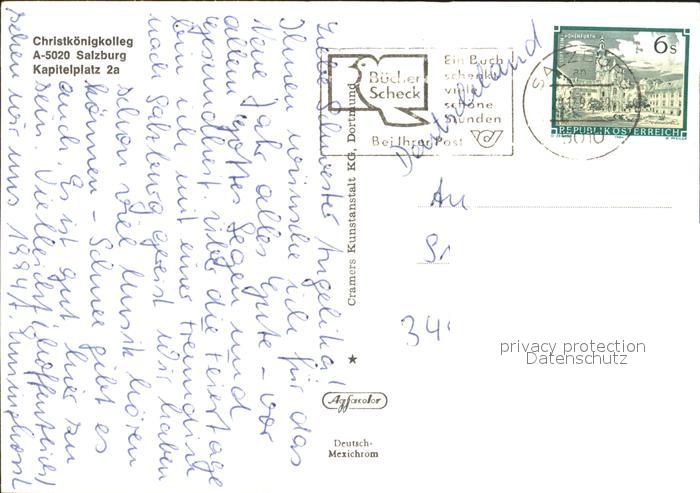 Christkönigkolleg
A-5020 Salzburg
Kapitelplatz 2a
Liebe Schwester Angelika!
Ihnen wünsche ich für das
Neue Jahr alles Gute - vor
allem Gottes Segen und
Gesundheit. Über die Feiertage
bin ich mit einer Freundin
nach Salzburg gereist. Wir haben
schon viel Musik hören
können - Schnee gibt es
auch. Es ist gut hier zu
sein. Vielleicht (hoffentlich)
sehen wir uns 1994!
Cramers Kunstanstalt KG, Dortmund
Agfacolor
Deutsch-
Mexichrom
Bücher
Scheck
Ein Buch
schenkt
viele
schöne
Stunden
Bei Ihrer Post
SALZBURG
5010
HOHENFURTH
6 S
REPUBLIK ÖSTERREICH
Deutschland
An
34
privacy protection
Datenschutz